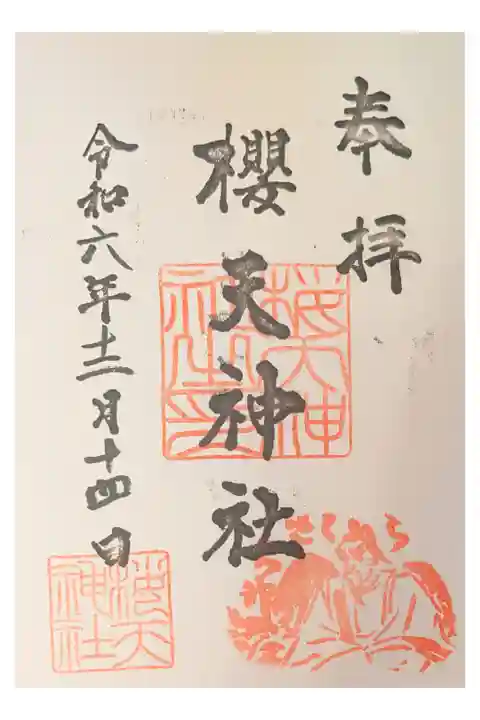 奉拝
櫻天神社
令和六年十二月十四日
櫻天神社
さくら